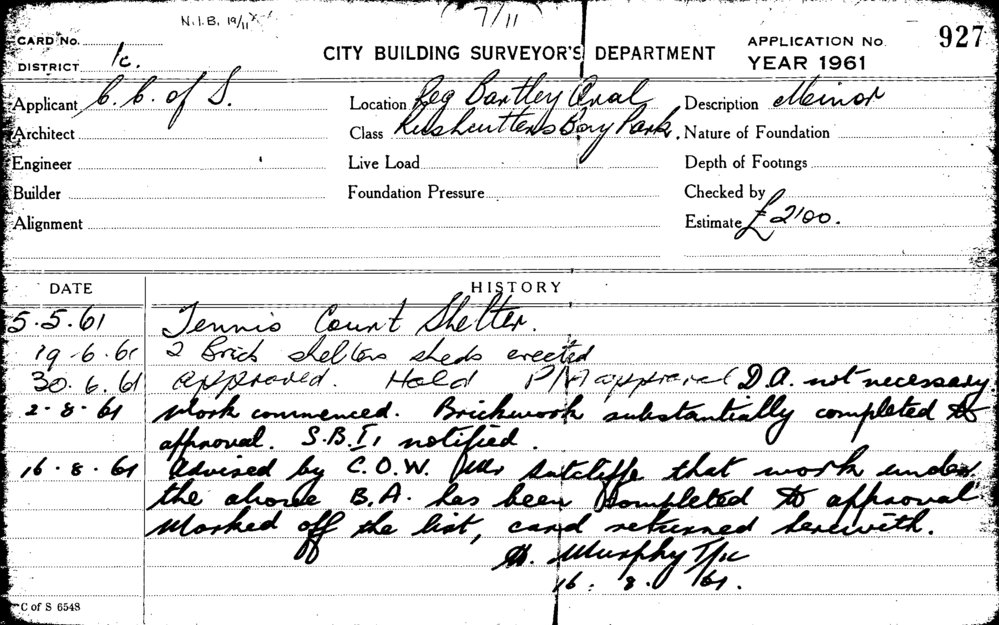 N.I.B. 19/11 (7/11)
CARD No.
DISTRICT 1c.
CITY BUILDING SURVEYOR'S DEPARTMENT
APPLICATION No. 927
YEAR 1961
Applicant C. C. of S.
Location Reg Bartley Oval
Description Minor
Architect
Class Rushcutters Bay Park.
Nature of Foundation
Engineer
Live Load
Depth of Footings
Builder
Foundation Pressure
Checked by
Alignment
Estimate £2100.
DATE HISTORY
5.5.61 Tennis Court Shelter.
19-6-61 2 Brick shelters sheds erected
30.6.61 approved. Hold P/M approval D.A. not necessary.
2-8-61 Work commenced. Brickwork substantially completed to
approval. S.B.I, notified.
16-8-61 Advised by C.O.W. Mr Sutcliffe that work under
the above B.A. has been completed to approval
Marked off the list, card returned herewith.
Murphy
16. 8. 61.
C of S 6548